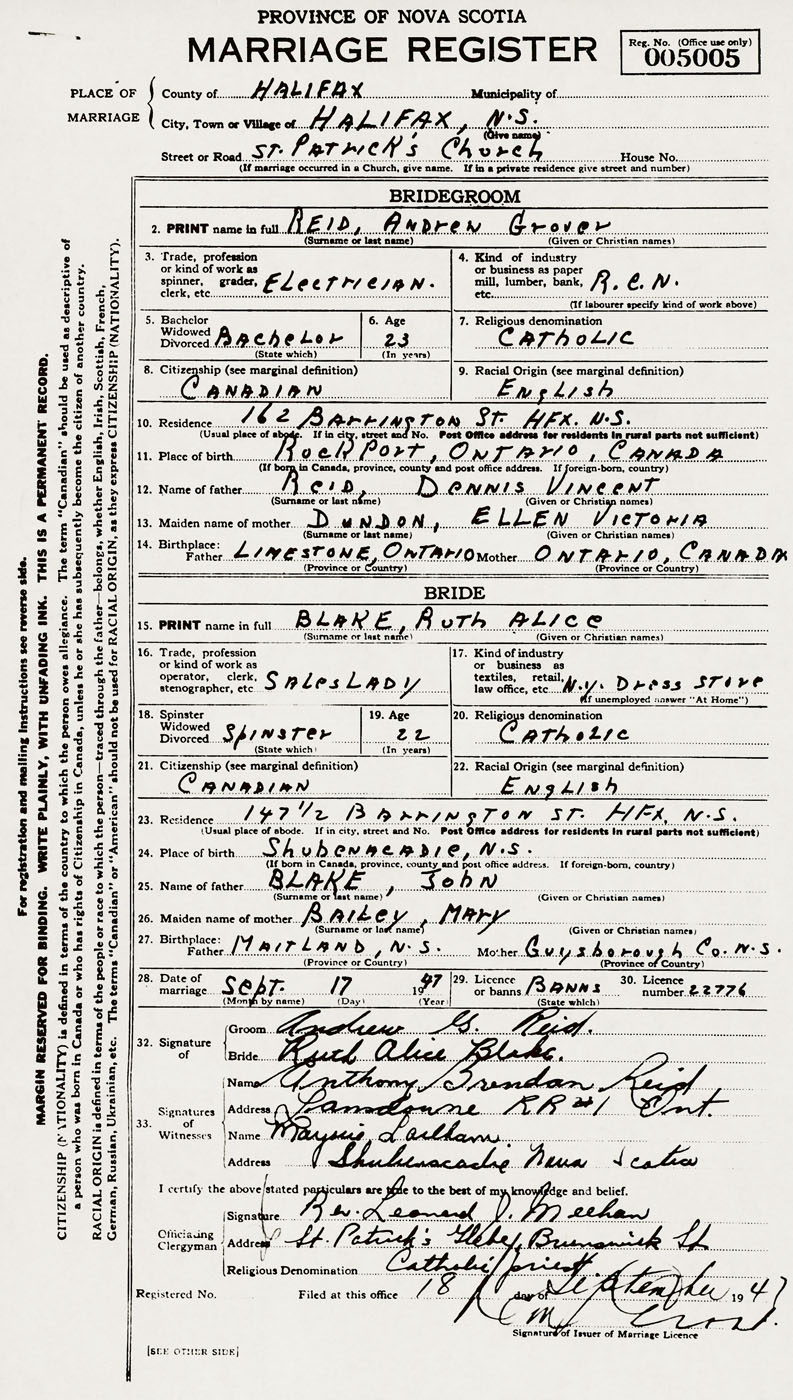 PROVINCE OF NOVA SCOTIA
MARRIAGE REGISTER
Reg. No. (Office use only)
005005
PLACE OF MARRIAGE
County of HALIFAX Municipality of
City, Town or Village of HALIFAX, N.S.
(Give name)
Street or Road ST. PATRICK'S Church House No.
(If marriage occurred in a Church, give name. If in a private residence give street and number)
BRIDEGROOM
2. PRINT name in full REID, ANDREW GROVER
(Surname or last name) (Given or Christian names)
3. Trade, profession or kind of work as spinner, grader, clerk, etc. ELECTRICIAN.
4. Kind of industry or business as paper mill, lumber, bank, etc. R.C.N.
(If labourer specify kind of work above)
5. Bachelor Widowed Divorced BACHELOR
(State which)
6. Age 23
(In years)
7. Religious denomination CATHOLIC
8. Citizenship (see marginal definition) CANADIAN
9. Racial Origin (see marginal definition) ENGLISH
10. Residence 162 BARRINGTON ST. HFX. N.S.
(Usual place of abode. If in city, street and No. Post Office address for residents in rural parts not sufficient)
11. Place of birth ROCKPORT, ONTARIO, CANADA
(If born in Canada, province, county and post office address. If foreign-born, country)
12. Name of father REID, DENNIS VINCENT
(Surname or last name) (Given or Christian names)
13. Maiden name of mother DUNDON, ELLEN VICTORIA
(Surname or last name) (Given or Christian names)
14. Birthplace: Father LIMESTONE, ONTARIO Mother ONTARIO, CANADA
(Province or Country) (Province or Country)
BRIDE
15. PRINT name in full BLAKE, RUTH ALICE
(Surname or last name) (Given or Christian names)
16. Trade, profession or kind of work as operator, clerk, stenographer, etc SALESLADY
17. Kind of industry or business as textiles, retail, law office, etc N.Y. DRESS STORE
(If unemployed answer "At Home")
18. Spinster Widowed Divorced SPINSTER
(State which)
19. Age 22
(In years)
20. Religious denomination CATHOLIC
21. Citizenship (see marginal definition) CANADIAN
22. Racial Origin (see marginal definition) ENGLISH
23. Residence 147 1/2 BARRINGTON ST. HFX, N.S.
(Usual place of abode. If in city, street and No. Post Office address for residents in rural parts not sufficient)
24. Place of birth SHUBENACADIE, N.S.
(If born in Canada, province, county and post office address. If foreign-born, country)
25. Name of father BLAKE, JOHN
(Surname or last name) (Given or Christian names)
26. Maiden name of mother BAILEY, MARY
(Surname or last name) (Given or Christian names)
27. Birthplace: Father MAITLAND, N.S. Mother Guysborough Co. N.S.
(Province or Country) (Province or Country)
28. Date of marriage SEPT. 17 1947
(Month by name) (Day) (Year)
29. Licence or banns BANNS
(State which)
30. Licence number 22776
32. Signature of
Groom Andrew G. Reid.
Bride Ruth Alice Blake.
33. Signatures of Witnesses
Name Anthony Brendan Reid
Address Lansdowne RR #1 Ont.
Name
Address Shubenacadie Nova Scotia
I certify the above stated particulars are true to the best of my knowledge and belief.
Officiating Clergyman
Signature Rev. Leonard J. Meehan
Address St. Patrick's Glebe, Brunswick St
Religious Denomination Catholic priest
Registered No. Filed at this office 18 day of September 1947
Signature of Issuer of Marriage Licence
[SEE OTHER SIDE]
For registration and mailing instructions see reverse side.
MARGIN RESERVED FOR BINDING. WRITE PLAINLY, WITH UNFADING INK. THIS IS A PERMANENT RECORD.
CITIZENSHIP (NATIONALITY) is defined in terms of the country to which the person owes allegiance. The term "Canadian" should be used as descriptive of
a person who was born in Canada or who has rights of Citizenship in Canada, unless he or she has subsequently become the citizen of another country.
RACIAL ORIGIN is defined in terms of the people or race to which the person—traced through the father—belongs, whether English, Irish, Scottish, French,
German, Russian, Ukrainian, etc. The terms "Canadian" or "American" should not be used for RACIAL ORIGIN, as they express CITIZENSHIP (NATIONALITY).